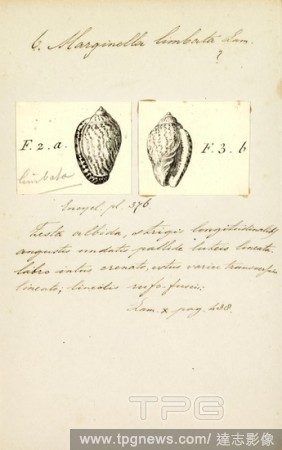 6. Marginella limbata Lam.
?
F. 2. a.
limbata
F. 3. b
Encycl. pl. 376
Testa albida, strigis longitudinalib.
angustis undatis pallide luteis lineata
labro intus crenato, extus varice transversim
lineato; lineolis rufo-fuscis.
Lam. X pag. 438.
TPG
www.tpgnews.com/達志影像